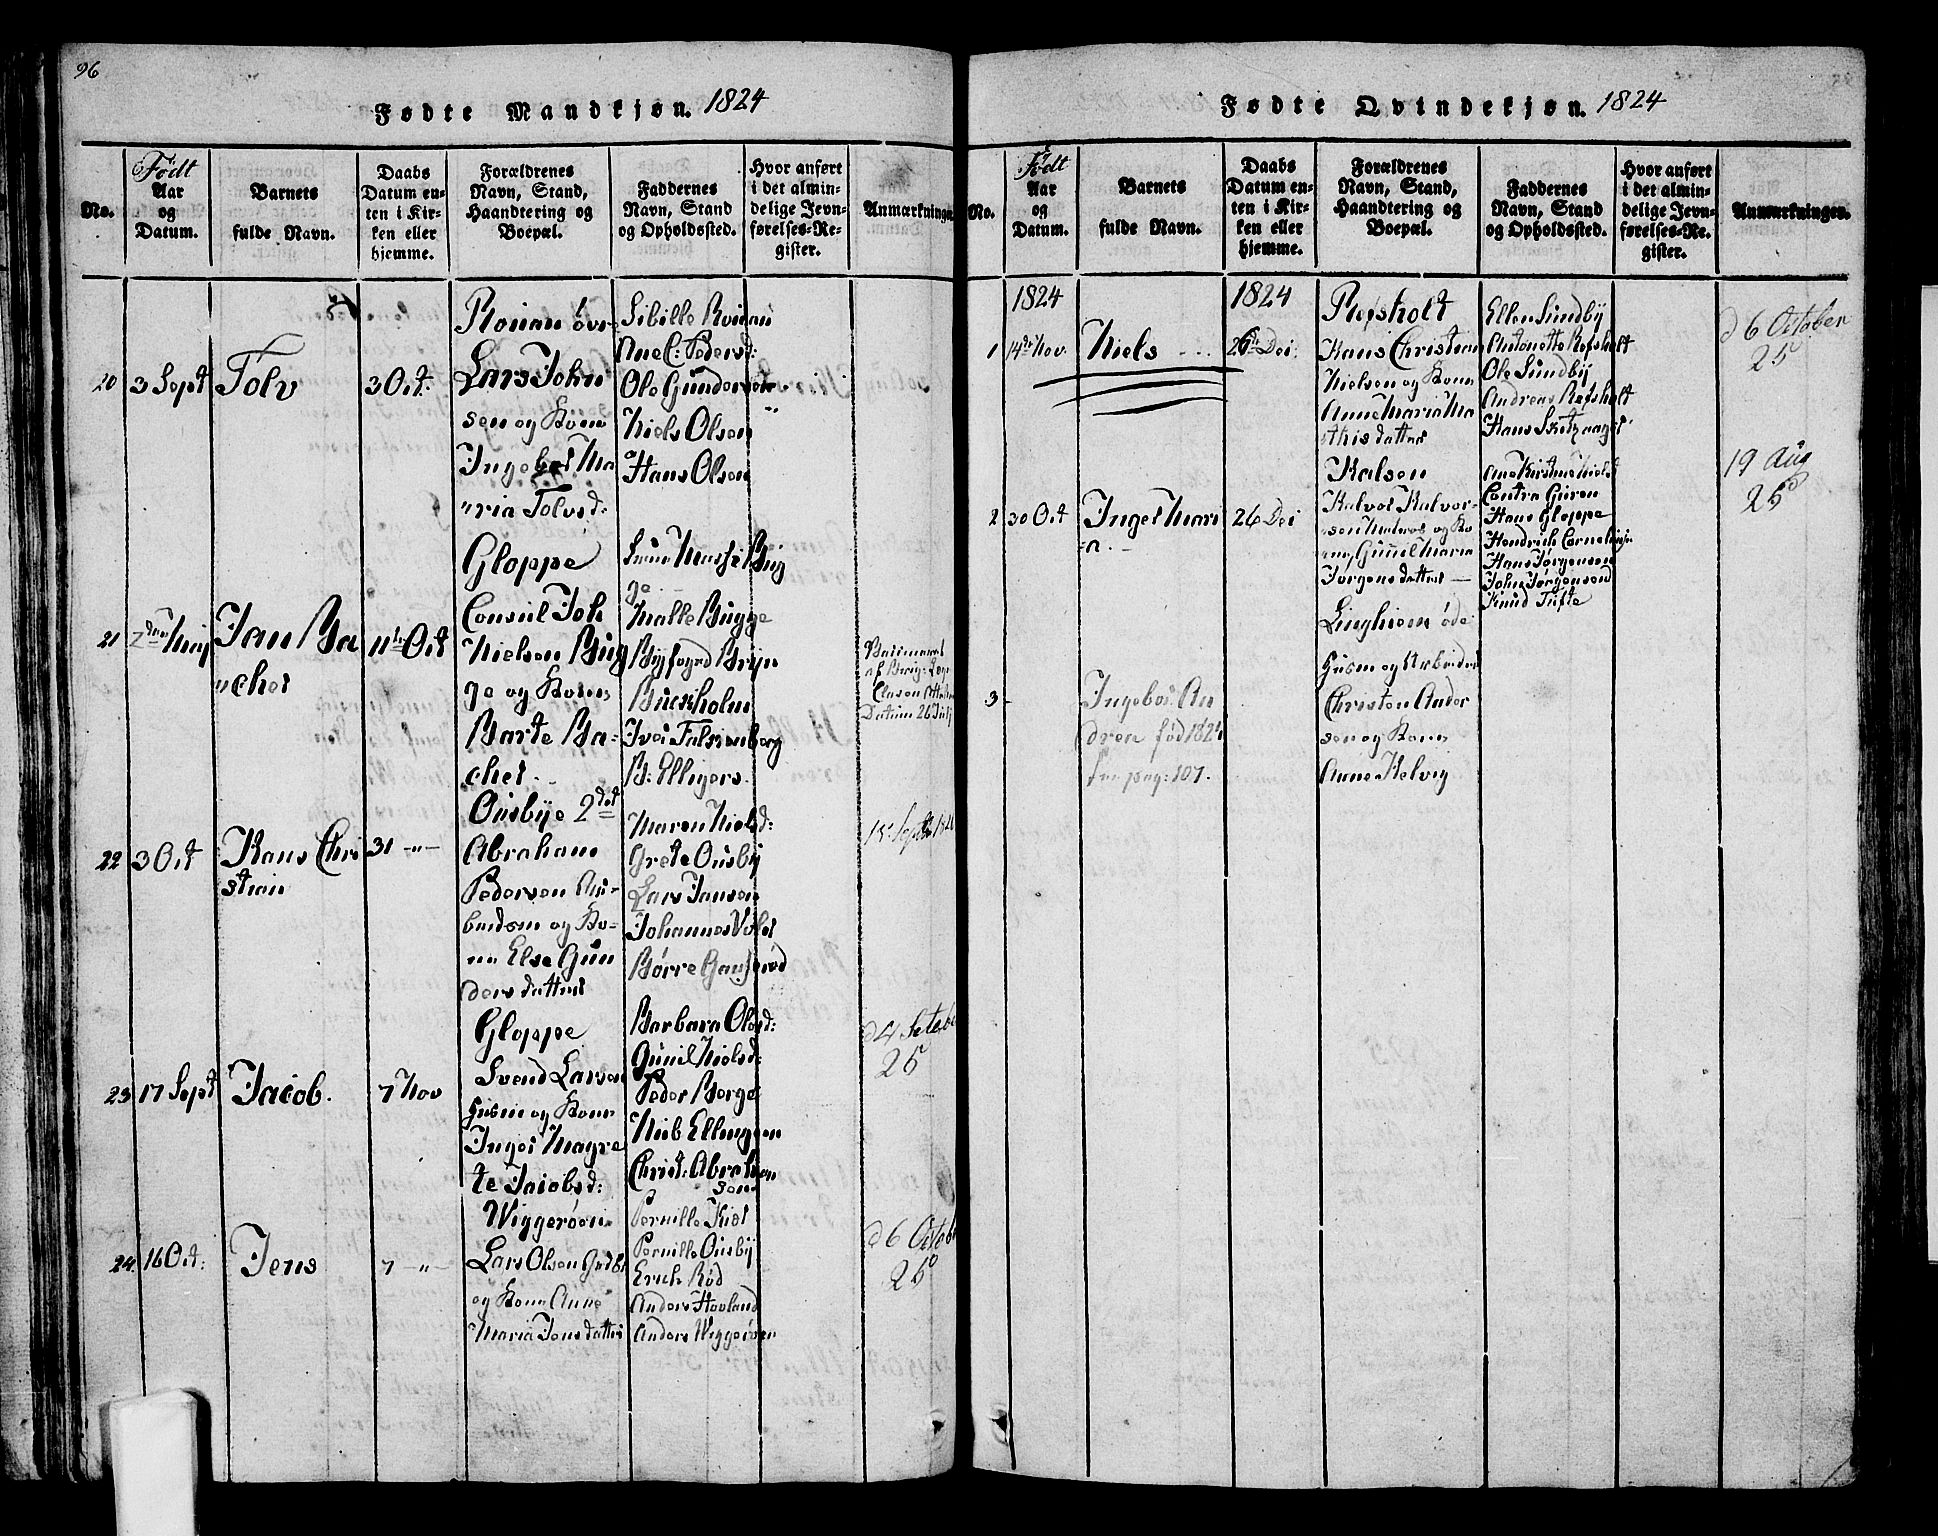 96
Fødte Mandkjøn. 1824
No.
Født
Aar
og
Datum.
Barnets
fulde Navn.
Daabs
Datum en-
ten i Kir-
ken eller
hjemme.
Forældrenes
Navn, Stand,
Haandtering og
Boepæl.
Faddernes
Navn, Stand
og Opholdssted.
Hvor anført
i det almin-
delige Jevn-
førelses-Re-
gister.
Anmærkninger.
20
3 Sept
Tolv
3 Oct:
Lars John
sen og Kone
Ingebor Ma
ria Tolvsd:
Sibille
Ane C: Pedersd:
Ole Gunderson
Niels Olsen
Hans Olsen
21
2den Maj
Jan Ba
"cher
11te Oct
Gloppe
Consul Joh
Nielsen Bug
ge og Kone
Barte Ba-
cher
Bug
ge
Malle Bugge
Byfoged Bryn
Buckholm
Iver Falsenberg
B: Elligers.
Datum 26 Julj
22
3 Oct
Hans Chri
stian
31 -"-
Ousbye 2det
Abraham
Pedersen
og Ko-
ne Else Gun
dersdatter
Maren Nielsd:
Grete Ousby
Lars Jansen
Johannes
Børre
Sept
23
17 Sept
Jacob.
7 Nov
Gloppe
Svend Larsen
Husm og Kone
Inger Magre
te Jacobsd:
Barbara Olsd:
Gunil Nielsd:
Peder Borge
Niels Ellingsen
Christ: Abraham
sen
d 4
25
24
16 Oct:
Jens
7 -"-
Wiggerøen
Lars Olsen
og Kone Anne
Maria Jensdatter
Pernille
Pernille Ousby
Erich Rød
Anders Hovland
Anders Wiggerøen
d 6 Octob
25
Fødte Qvindekjøn. 1824
No.
Født
Aar
og
Datum.
Barnets
fulde Navn.
Daabs
Datum en-
ten i Kir-
ken eller
hjemme.
Forældrenes
Navn, Stand,
Haandtering og
Boepæl.
Faddernes
Navn, Stand
og Opholdssted.
Hvor anført
i det almin-
delige Jevn-
førelses-Re-
gister.
Anmærkninger.
1824
1824
1
14de Nov.
Niels
26 Dec:
Refsholt
Hans Christian
Nielsen og Kone
Anne Maria Ma
thisdatter
Ellen Sundby
Antonette Refsholt
Ole Sundby
Andreas Refsholt
Hans
d 6 October
25
2
30 Oct
Inger Mari
a.
26 Dec
Halvor Halvor-
sen Matros og Ko
ne, Gunnel Maria
Jørgensdatter
Ane Kirstine Nielsd
Hans Gloppe
Hendrich Cornelius
Hans Jørgensen
John Jørgensen
Knud Tufte
19 Aug
25
3
Ingebor An
drea fød 1824
pag: 107.
Husm og Arbeider
Christen Ander
sen og Kone
Anne Helvig